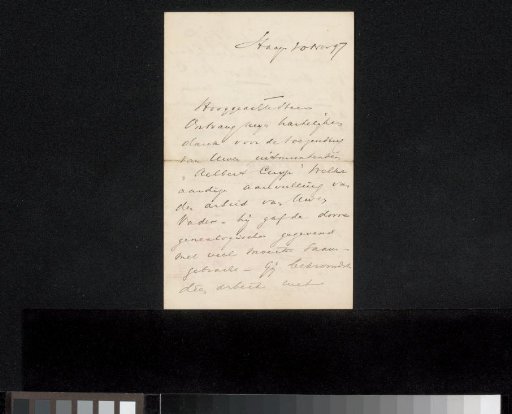 Haag 20 Nov 97
Hooggeachte Heer
Ontvang mijn hartelijken
dank voor de toezending
van Uwe uitmuntenden
"Aelbert Cuyp" Welke
aardige aanvulling van
den arbeid van Uwen
Vader – hij gaf de dorre
genealogische gegevens
met veel moeite saam-
gebracht – Gij
dien arbeid met